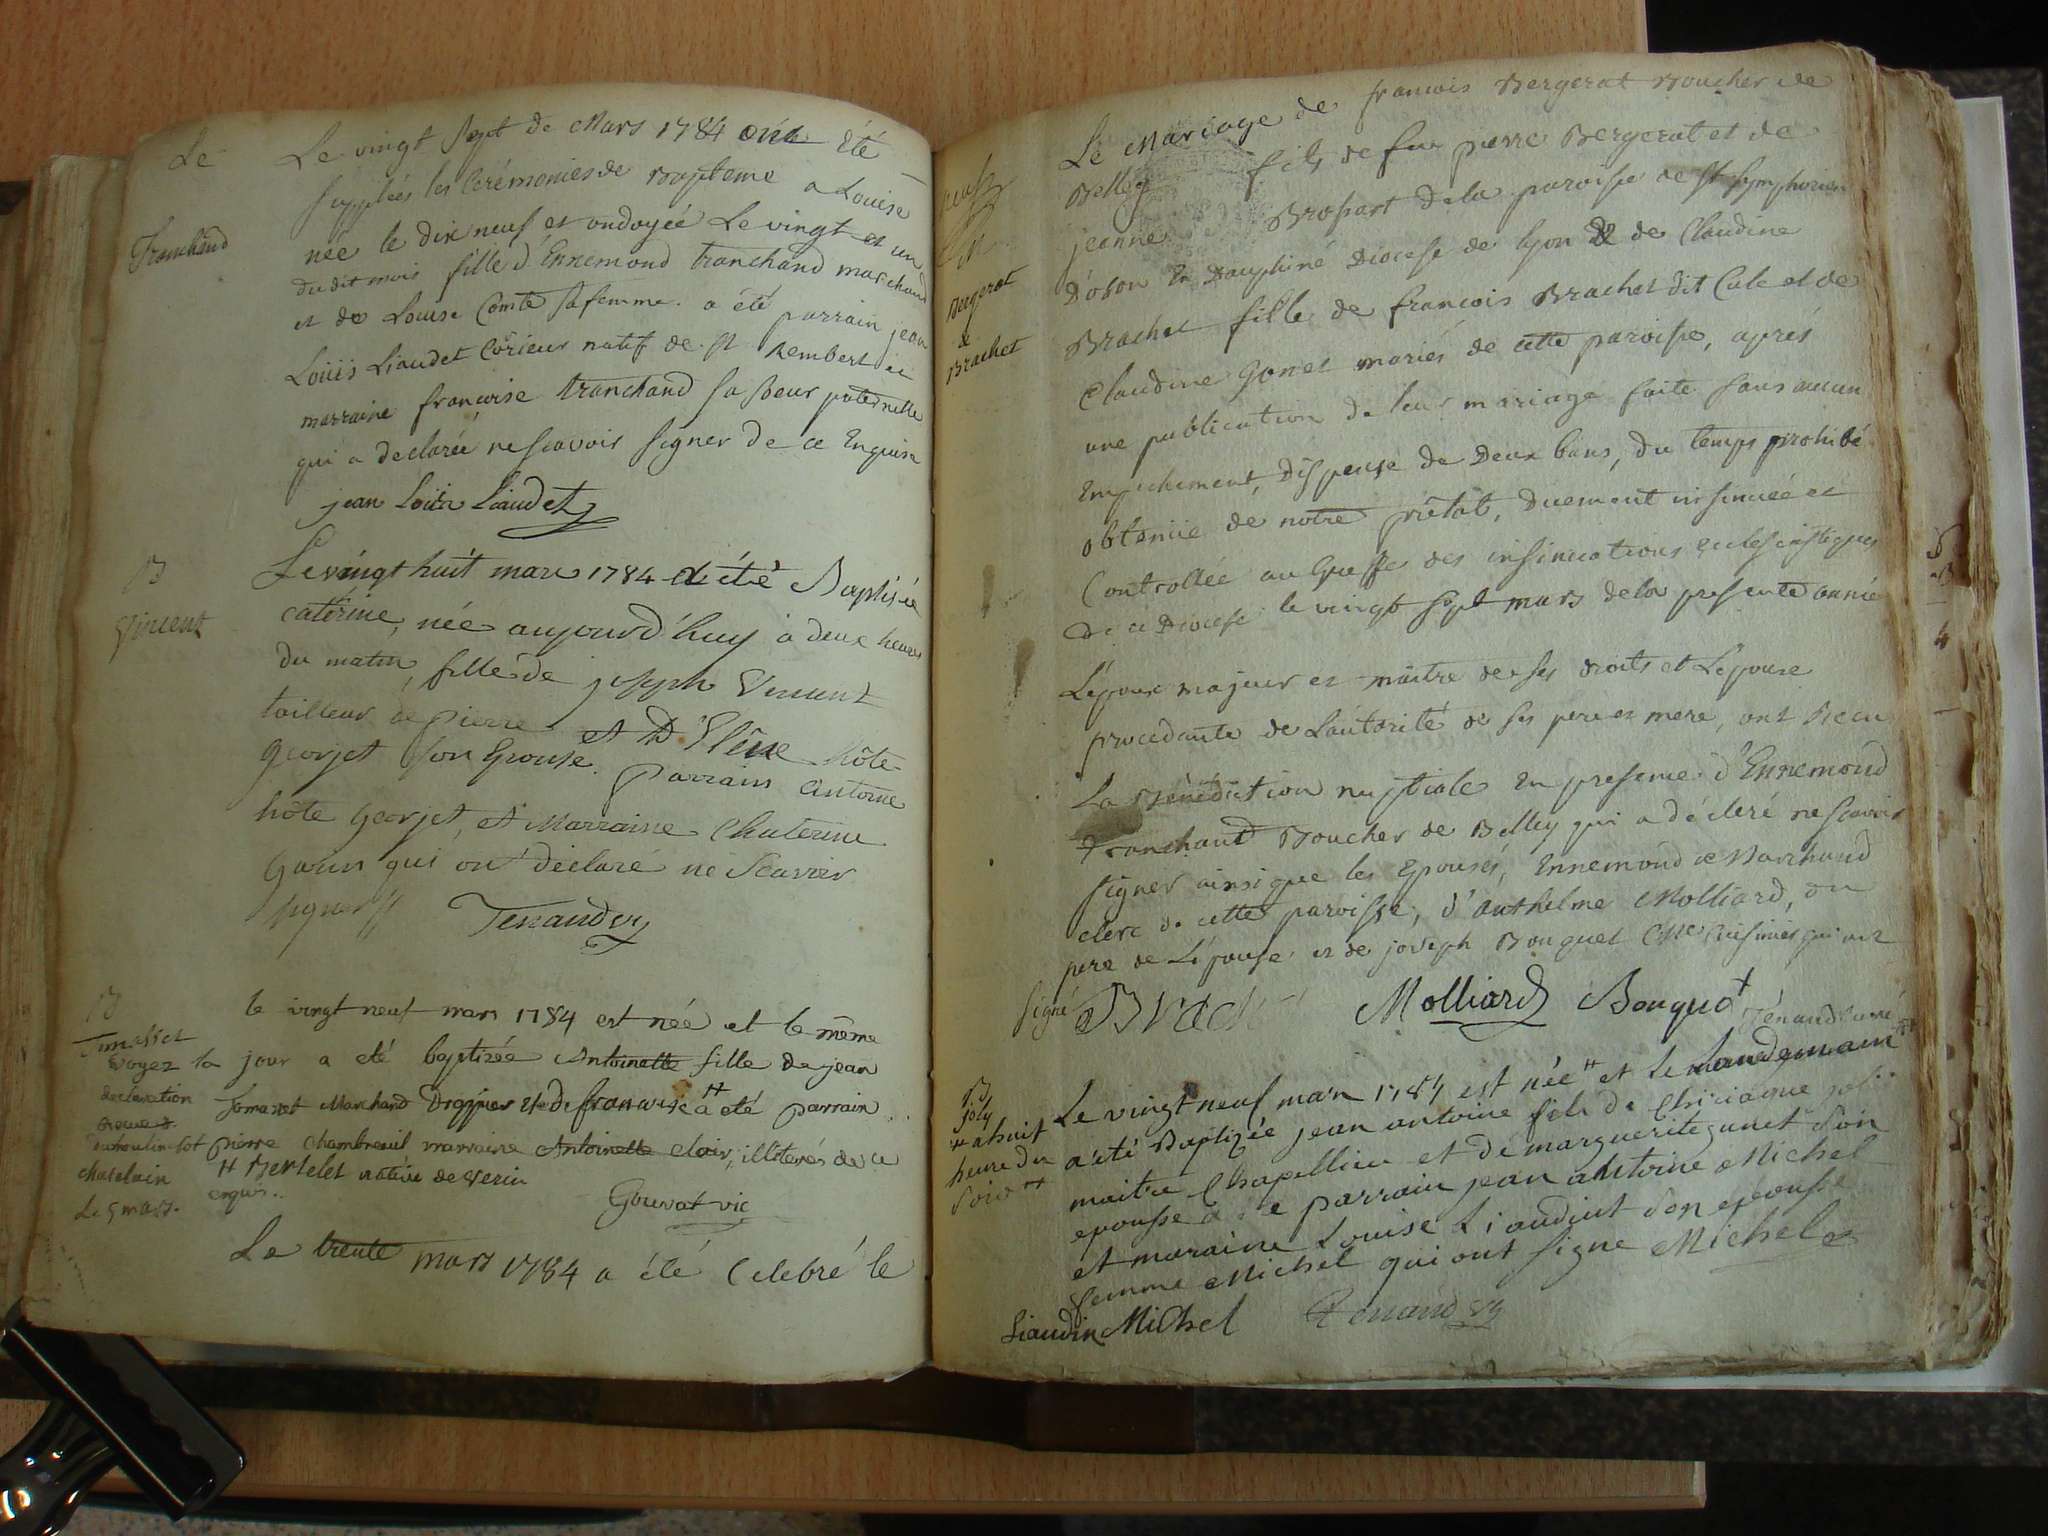 Le
Tranchand
Le vingt sept de Mars 1784 ont été
supplées les Cérémonies de Bapteme a Louise
née le dix neuf et ondoyée Le vingt et un
du dit mois fille d'Ennemond tranchand marchand
et de Louise Comte sa femme. a été parrain jean
Loüis Liaudet natif de St Rembert et
marraine françoise tranchand sa soeur paternelle
qui a declarée ne scavoir signer de ce Enquise
jean Loüis Liaudet
B
Vincent
Le vingt huit mars 1784 a été Baptisée
catérine, née aujourd'huy à deux heures
du matin, fille de joseph Vincent
tailleur de pierre et D'Elêne hôte
georjet son Epouse. Parrain Antoine
hôte Georjet, et Marraine Chaterine
qui ont déclaré ne Scavoir
signer
Tenaud
B
voyez la
declaration
chatelain
Le 9 mars.
le vingt neuf mars 1784 est née et le même
jour a eté baptizée Antoinette fille de jean
Marchand Drappier et de francoise # a été parrain
pierre Chambreuil marraine Antoinette clair, illiterés de ce
# Bertelet native de
enquis..
Gouvat vic
Le trente mars 1784 a été Celebré le
Bergerat
&
Brachet
Le Mariage de francois Bergerat Boucher de
Belley fils de feu pierre Bergerat et de
jeanne Brossart de la paroisse de St symphorien
D'ozon En Dauphiné Diocese de lyon & de Claudine
Brachet fille de francois Brachet dit Cule et de
Claudine Gonet mariés de cette paroisse, aprés
une publication de leur mariage faite sans aucun
Empechement, Dispense de Deux bans, du temps prohibé
obtenüe de notre prélat, Duement insinuée et
Controllée au Greffe des insinuations Ecclesiastiques
de ce Diocese le vingt sept mars de la presente année
L'époux majeur et maitre de ses droits et L'epouse
procedante de L'autorité de ses pere et mere, ont Recu
La Bénédiction nuptiale En presence d'Ennemond
Tranchand Boucher de Belley qui a déclaré ne scavoir
signer ainsi que les Epousés, Ennemond Marchand
clerc de cette paroisse, d'Anthelme Molliard, du
pere de L'épouse et de joseph Bouquet cuisinier qui ont
signé Brachet Molliard Bouquet
Tenaud curé
B
Joly
# a huit
heure du
soir #
Le vingt neuf mars 1784 est née # et le landemain
a été Baptizée jean antoine fils de Chiriaque joli
maitre Chapellier et de marguerite gunet son
epousse a été parrain jean antoine Michel
et maraine Louise Liaudint son epousse
femme Michel qui ont signe Michel
Liaudin Michel Tenaud